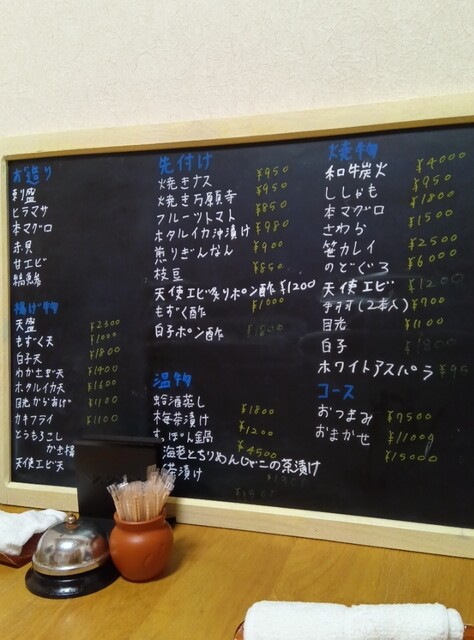 お造り
刺盛
ヒラマサ
本マグロ
赤貝
甘エビ
縞鯵
揚げ物
天盛 ¥2300
もずく天 ¥1000
白子天 ¥1800
わかさぎ天 ¥1400
ホタルイカ天 ¥1600
目光からあげ ¥1100
カキフライ ¥1100
とうもろこし
かき揚
天使エビ天
先付け
焼きナス ¥950
焼き万願寺 ¥950
フルーツトマト ¥850
ホタルイカ沖漬け ¥980
煎りぎんなん ¥900
枝豆 ¥850
天使エビ炙りポン酢 ¥1200
もずく酢 ¥1000
白子ポン酢 ¥1800
温物
蛤酒蒸し ¥1800
梅茶漬け ¥1200
すっぽん鍋 ¥4500
海老とちりめんじゃこの茶漬け
茶漬け
焼物
和牛炭火 ¥4000
ししゃも ¥950
本マグロ ¥1800
さわら ¥1500
笹カレイ ¥2500
のどぐろ ¥6000
天使エビ ¥1200
(2本入) ¥700
目光 ¥1100
白子 ¥1800
ホワイトアスパラ ¥95
コース
おつまみ ¥7500
おまかせ ¥11000
¥15000